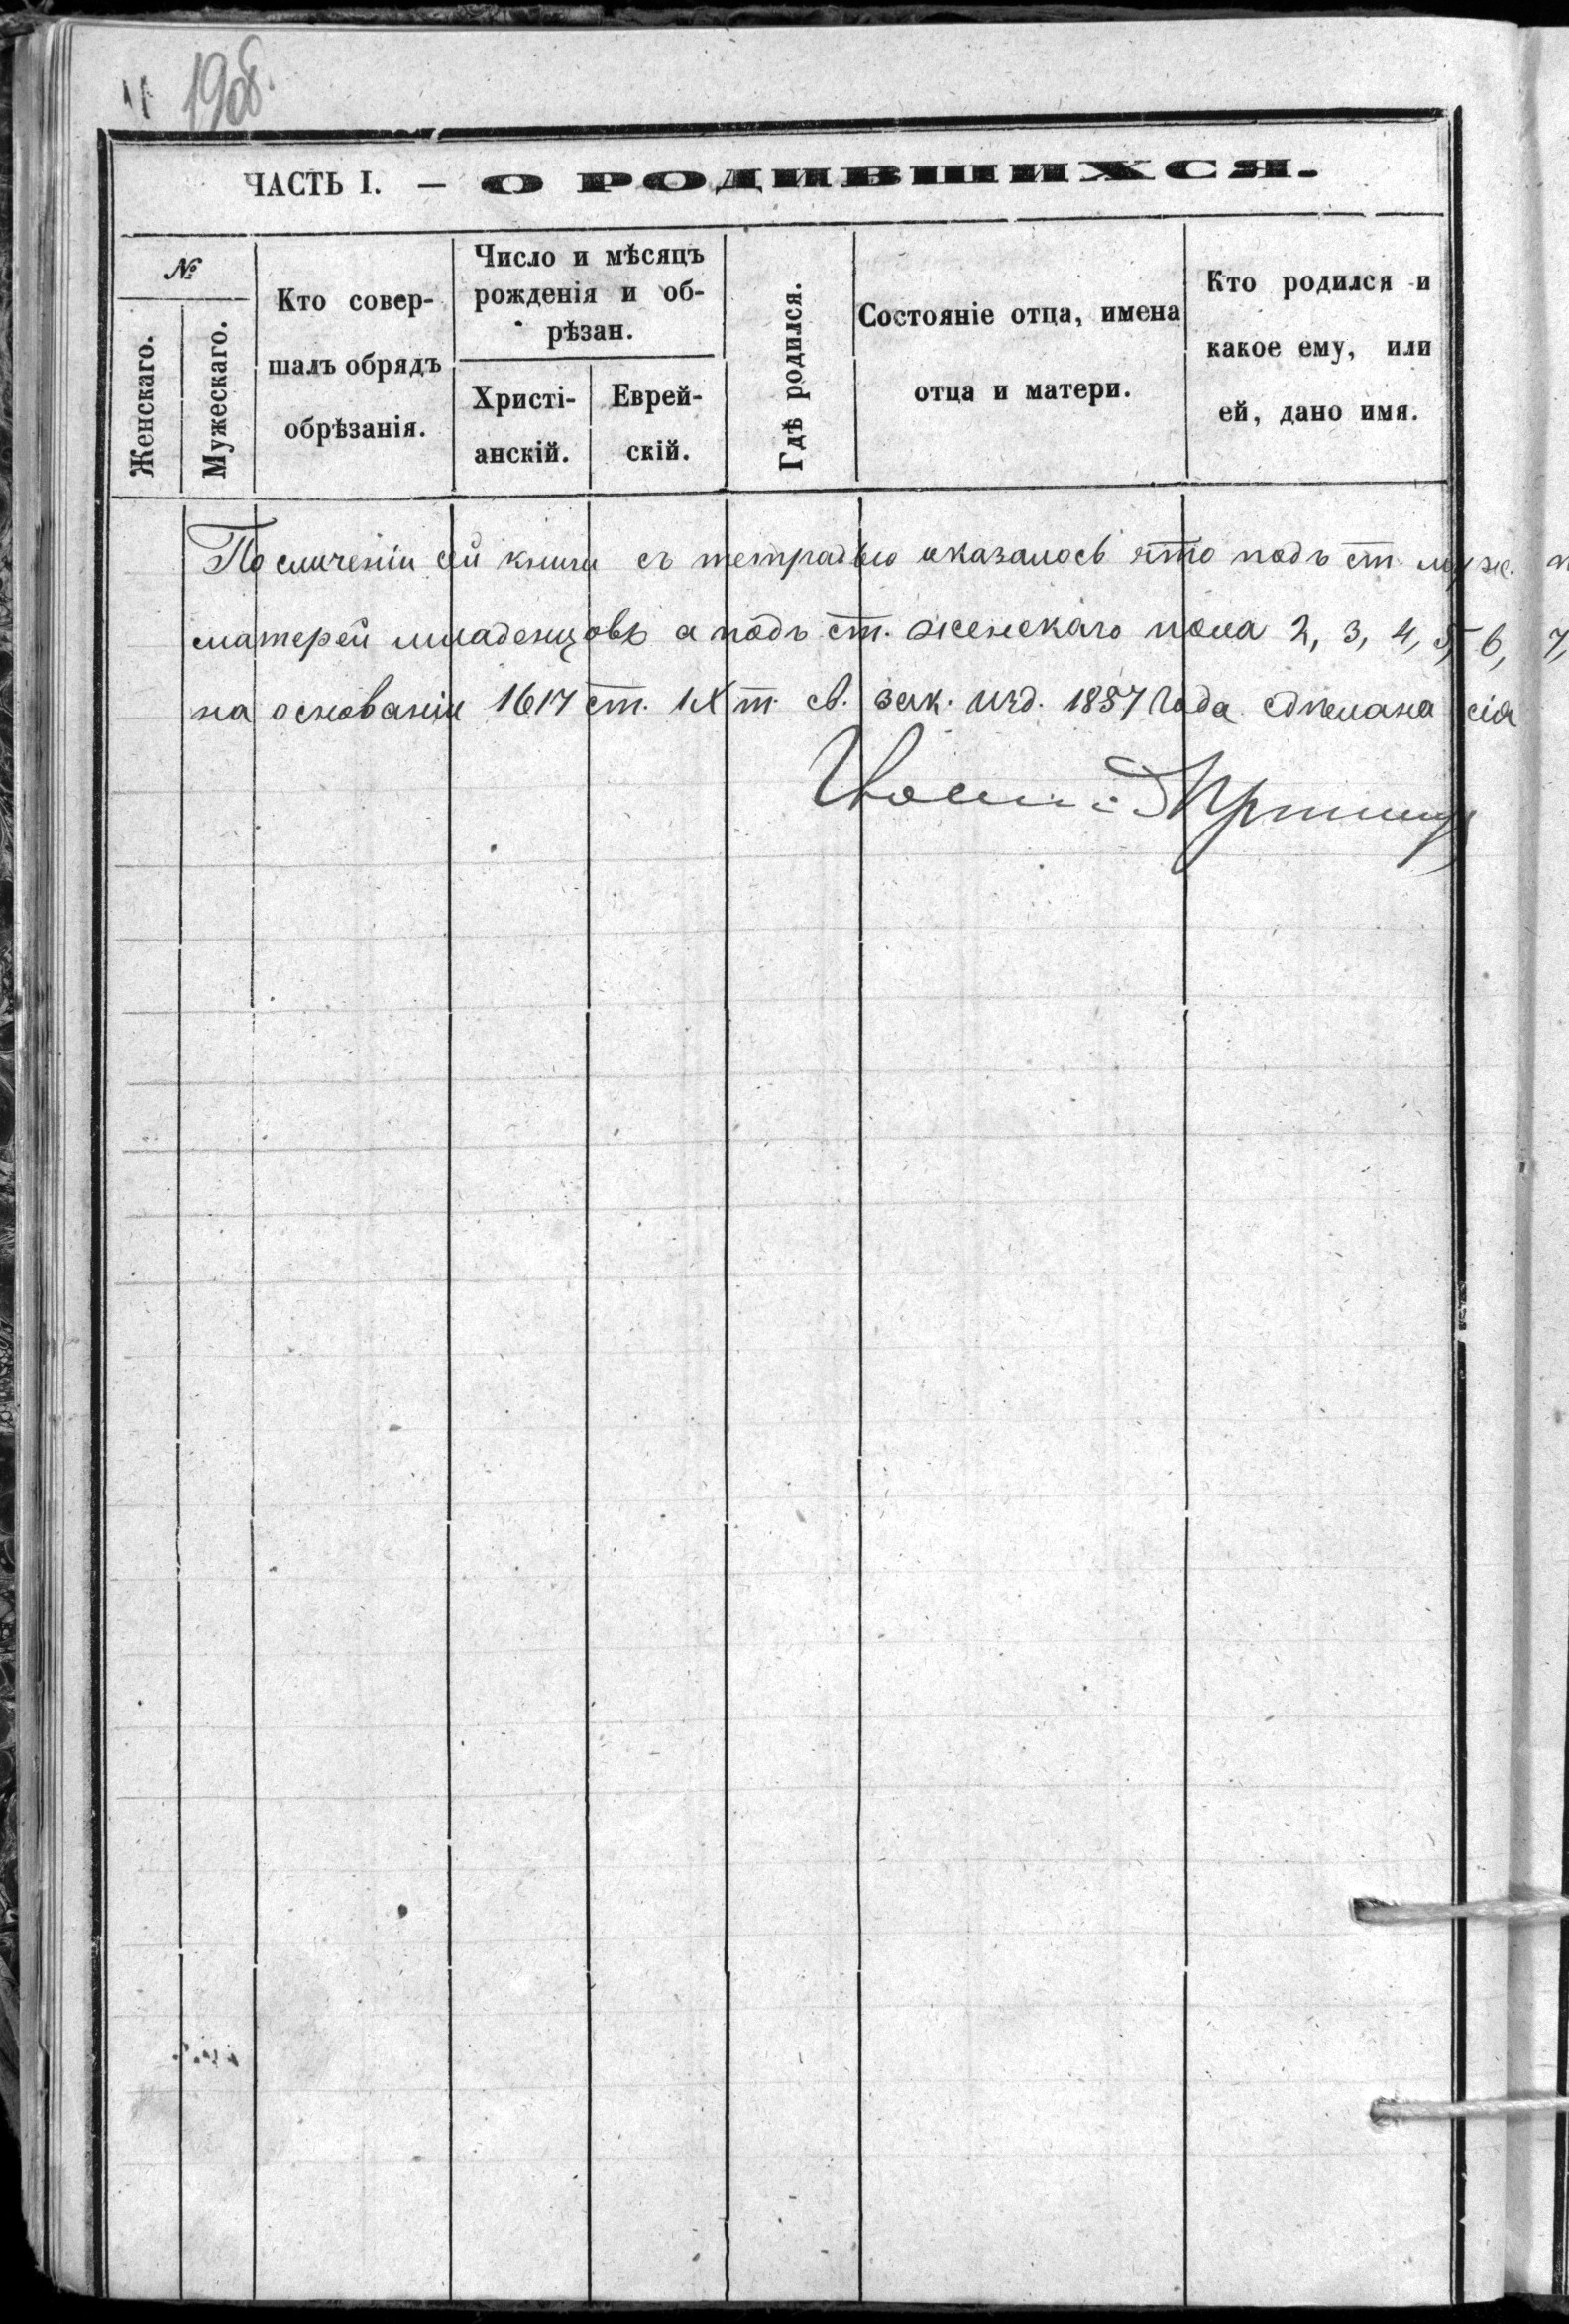 190б.
ЧАСТЬ I. — О РОДИВШИХСЯ.
№
Женскаго.
Мужескаго.
Кто совер-
шалъ обрядъ
обрѣзанія.
Число и мѣсяцъ
рожденія и об-
рѣзан.
Христі-
анскій.
Еврей-
скій.
Гдѣ родился.
Состояніе отца, имена
отца и матери.
Кто родился и
какое ему, или
ей, дано имя.
По сличеніи сей книги съ тетрадью оказалось что подъ ст. муж.
матерей младенцовъ а подъ ст. женскаго пола 2, 3, 4, 5, 6, 7,
на основаніи 1617 ст. IX т. св. зак. изд. 1857 года сдѣлана сія